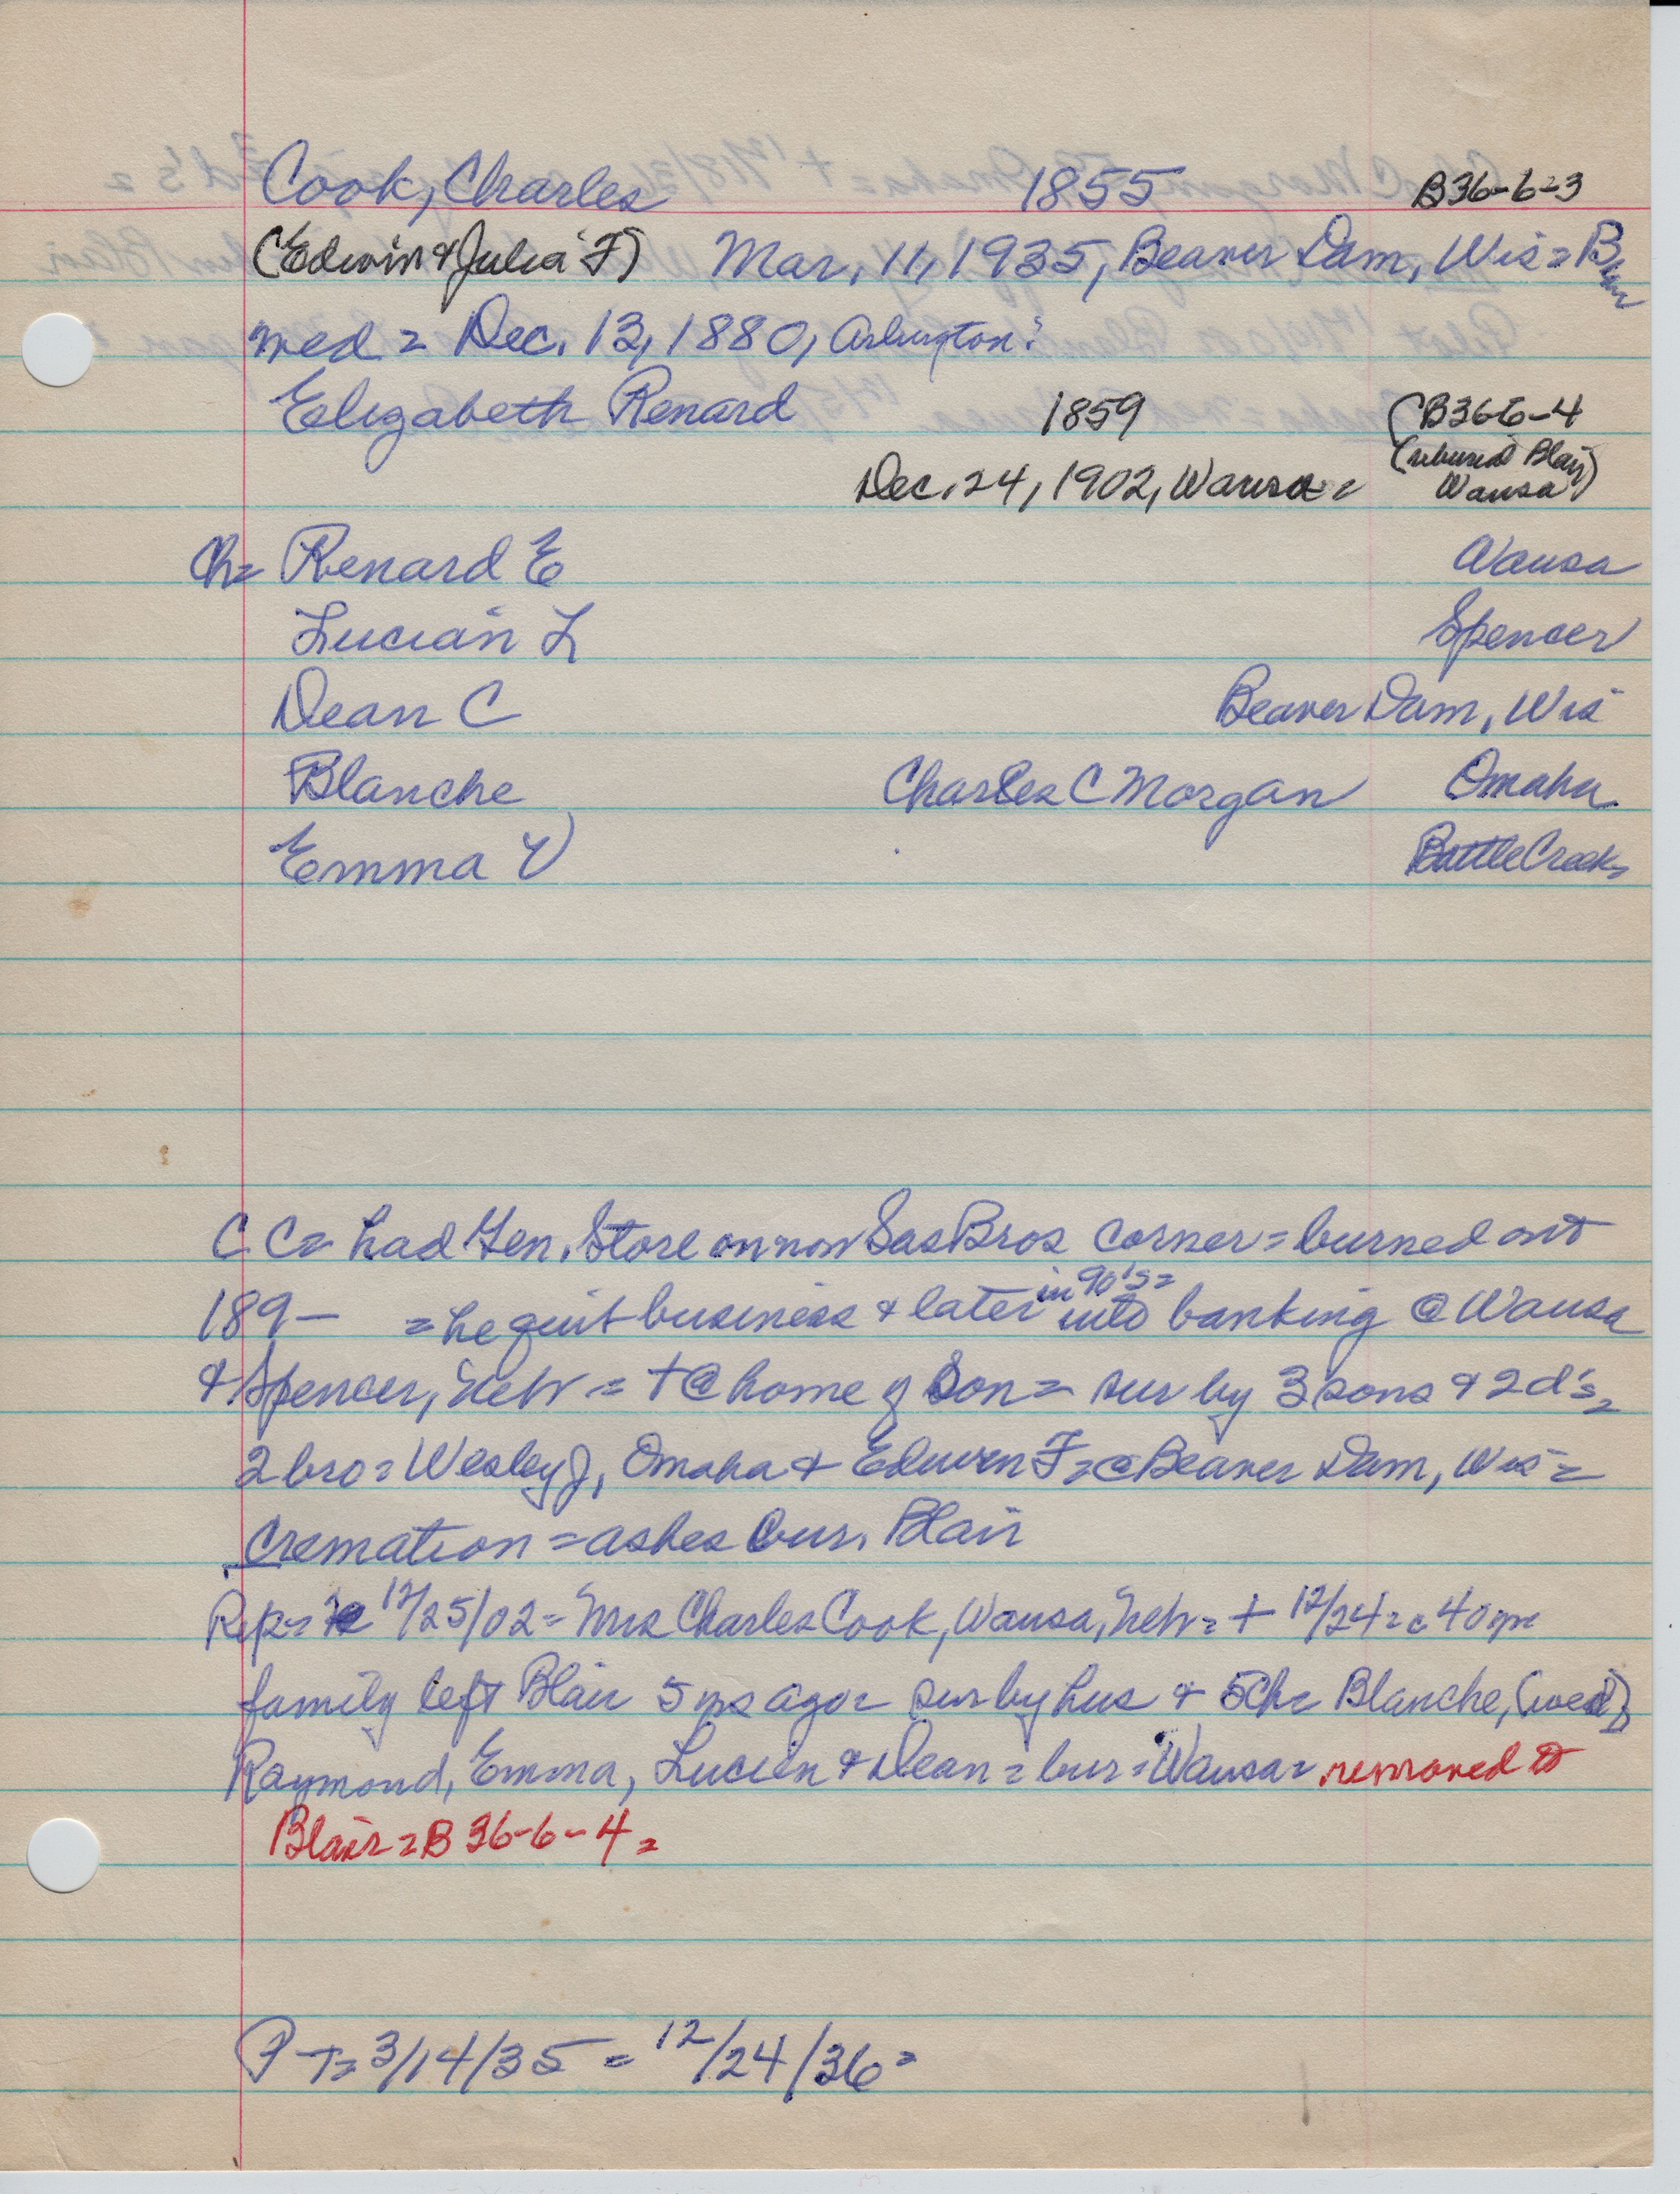 Cook, Charles 1855 B36-6-3
(Edwin & Julia F) Mar. 11, 1935, Beaver Dam, Wis = Bur
med = Dec. 13, 1880, Arlington?
Elizabeth Renard 1859 (B366-4
(reburied Blair)
Dec. 24, 1902, Wausa = Wausa)
Ch= Renard E Wausa
Lucian L Spencer
Dean C Beaver Dam, Wis
Blanche Charles C Morgan Omaha
Emma V Battle Creek
C C= had Gen. Store on now Sas Bros corner = burned out
189- = he quit business & later in 90's= into banking @ Wausa
& Spencer, Neb = + @ home of Son = sur by 3 sons & 2 d's=
2 bro = Wesley J, Omaha & Edwin F = @ Beaver Dam, Wis =
Cremation = ashes bur. Blair
Rep = 12/25/02 = Mrs Charles Cook, Wausa, Neb = + 12/24 =
family left Blair 5 yrs ago = sur by hus & 5 Ch= Blanche, (wed)
Raymond, Emma, Lucien & Dean = bur = Wausa = removed to
Blair = B 36-6-4 =
P T= 3/14/35 = 12/24/36 =